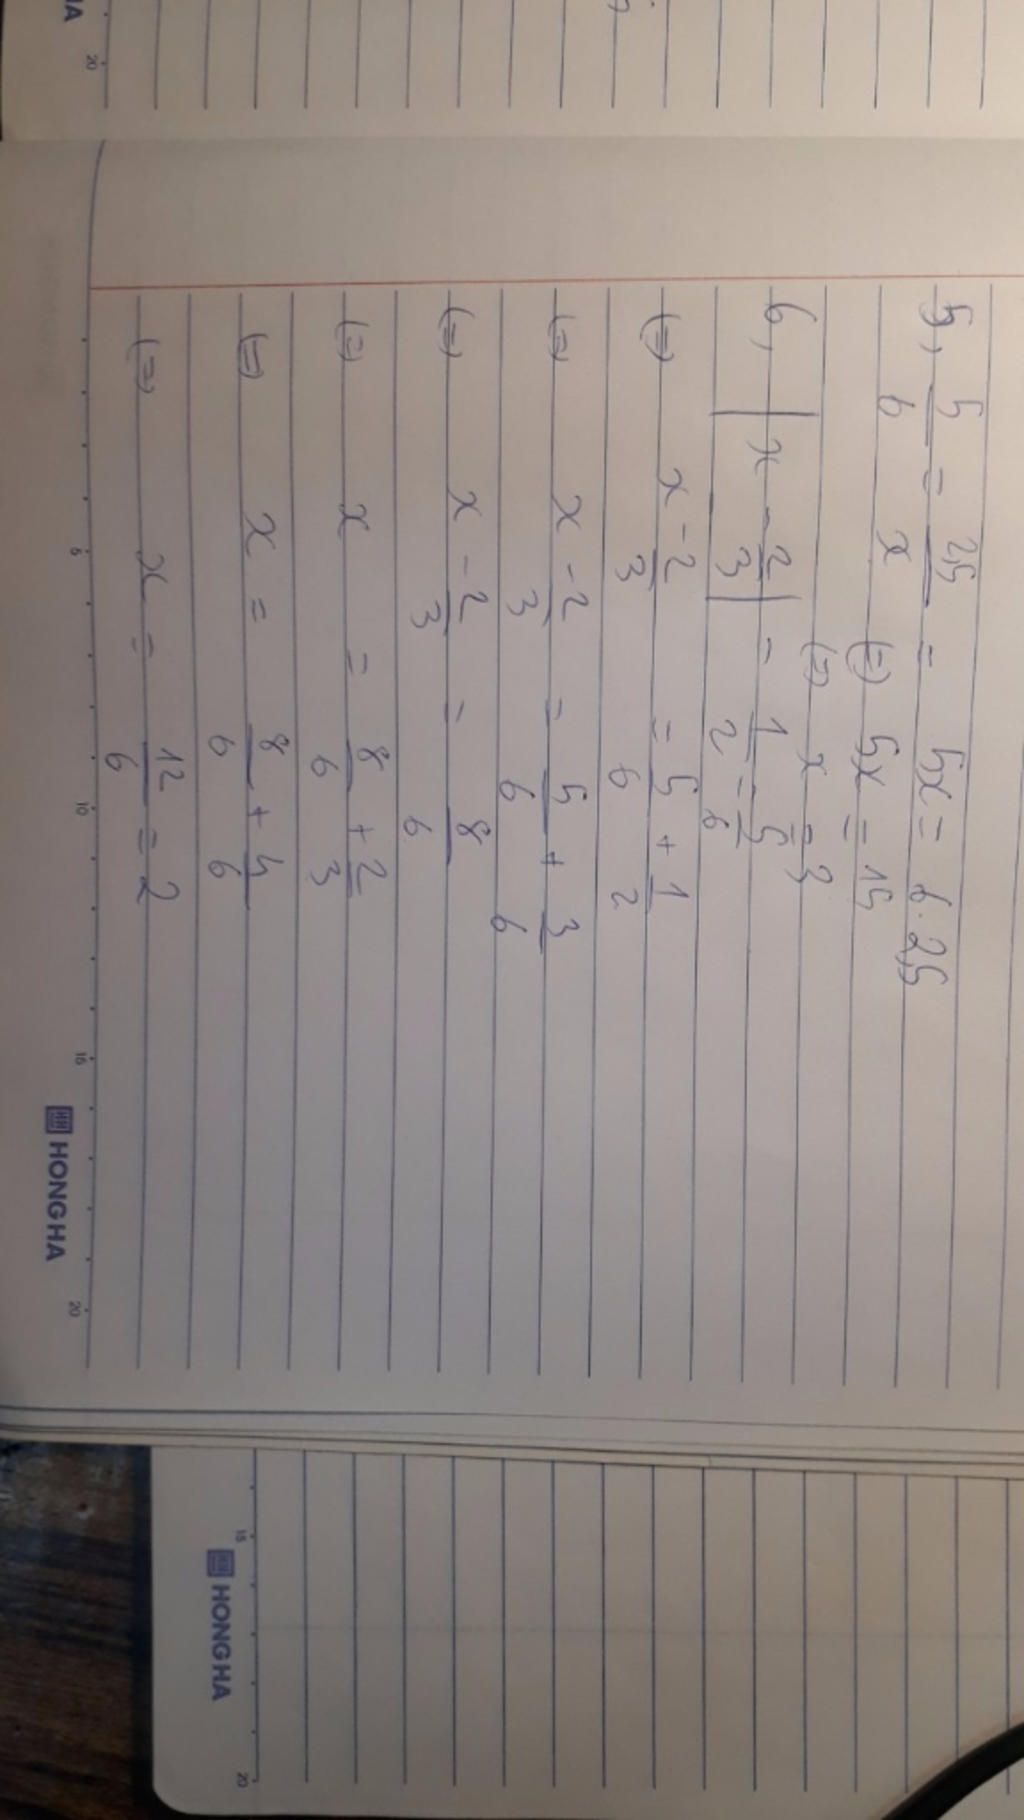 5, 5/6 = 2,5/x = 5x = 6.2,5
(=) 5x = 15
(=) x = 3
6, | x - 2/3 | = 1/2 - 5/6
(=) x - 2/3 = 5/6 + 1/2
(=) x - 2/3 = 5/6 + 3/6
(=) x - 2/3 = 8/6
(=) x = 8/6 + 2/3
(=) x = 8/6 + 4/6
(=) x = 12/6 = 2
5 10 15 20
HONG HA
15 20
HONG HA
20